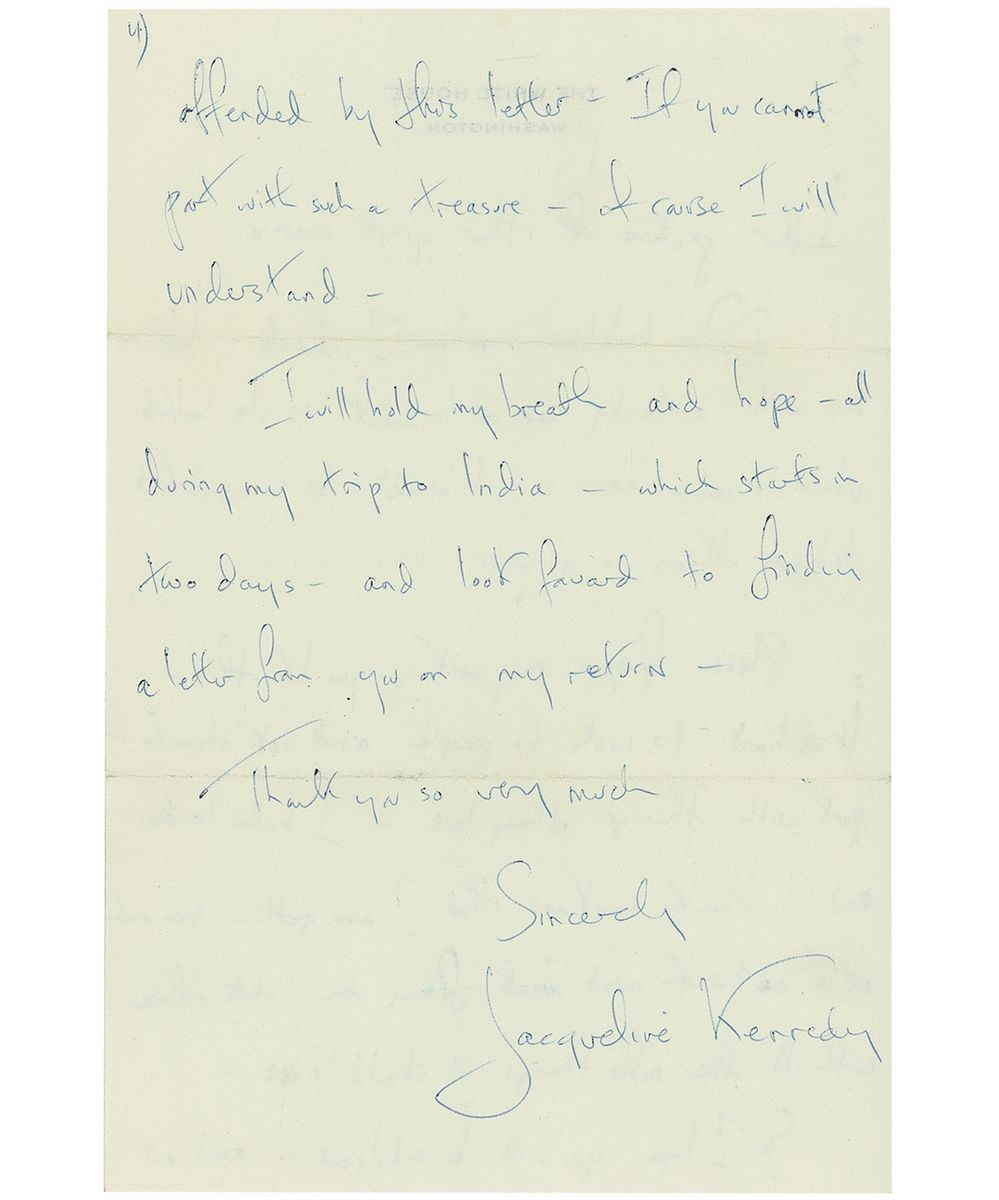 4)
offended by this letter – If you cannot
part with such a treasure – of course I will
understand –
I will hold my breath and hope – all
during my trip to India – which starts in
two days – and look forward to finding
a letter from you on my return –
Thank you so very much
Sincerely
Jacqueline Kennedy
THE WHITE HOUSE
WASHINGTON